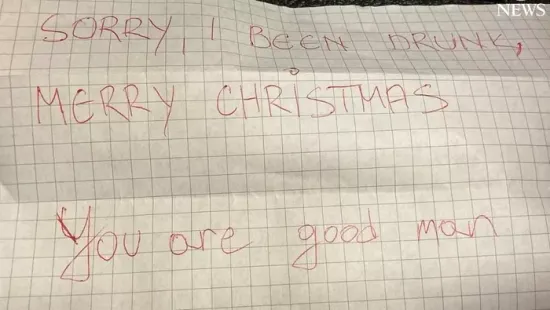 NEWS
SORRY, I BEEN DRUNK,
MERRY CHRISTMAS
You are good man